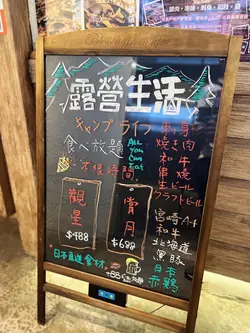 露營生活
キャンプライフ
食べ放題
All
You
Can
Eat
不限時間
觀星
$488
賞月
$688
刺身
焼き肉
和牛
串燒
生ビール
クラフトビール
宮崎A4
和牛
北海道
黒豚
日本
赤鶏
日本直送食材